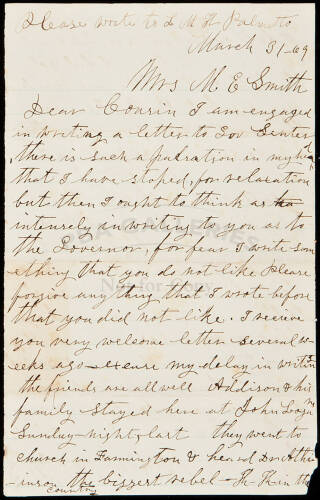 Please write to
March 31/69
Mrs M E Smith
Dear Cousin I am engaged
in writing a letter to Gov Senter
there is such a palration in my head
that I have stoped, for relaxation
but then I ought to think as
intensely in writing to you as to
the Governor, for fear I write som
ething that you do not like. Please
forgive anything that I wrote before
that you did not like. I recieve
you very welcome letter several
weeks ago excuse my delay in writin
the friends are all well Addison & his
family stayed here at John Logan
Sunday night last they went to
church in Farmington & heard
the biggest rebel in the
country